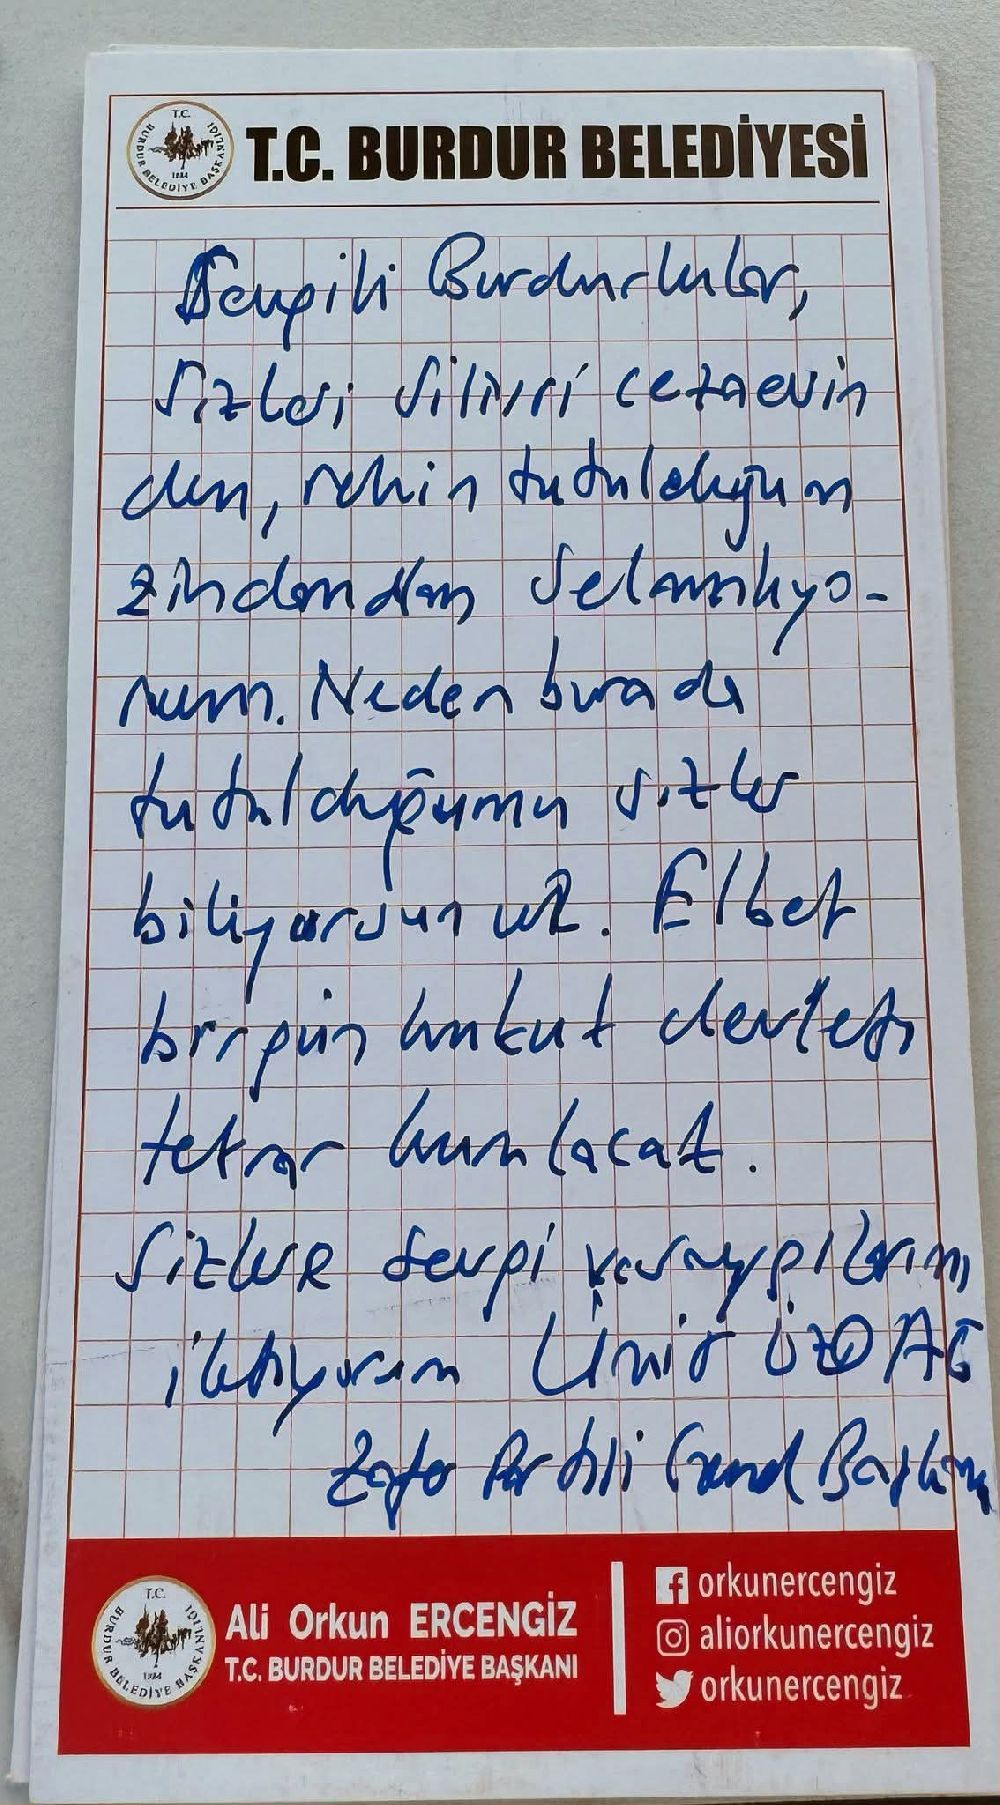 T.C.
BURDUR BELEDİYE BAŞKANLIĞI
T.C. BURDUR BELEDİYESİ
Sevgili Burdurlular,
Sizleri Silivri cezaevin
den, rehin tutulduğum
zindandan selamlıyo-
rum. Neden burada
tutulduğumu sizler
biliyorsunuz. Elbet
birgün hukuk devleti
tekrar kurulacak.
Sizlere sevgi ve saygılarımı
iletiyorum Ümit ÖZDAĞ
Zafer Partisi Genel Başkanı
T.C.
BURDUR BELEDİYE BAŞKANLIĞI
Ali Orkun ERCENGİZ
T.C. BURDUR BELEDİYE BAŞKANI
orkunercengiz
aliorkunercengiz
orkunercengiz